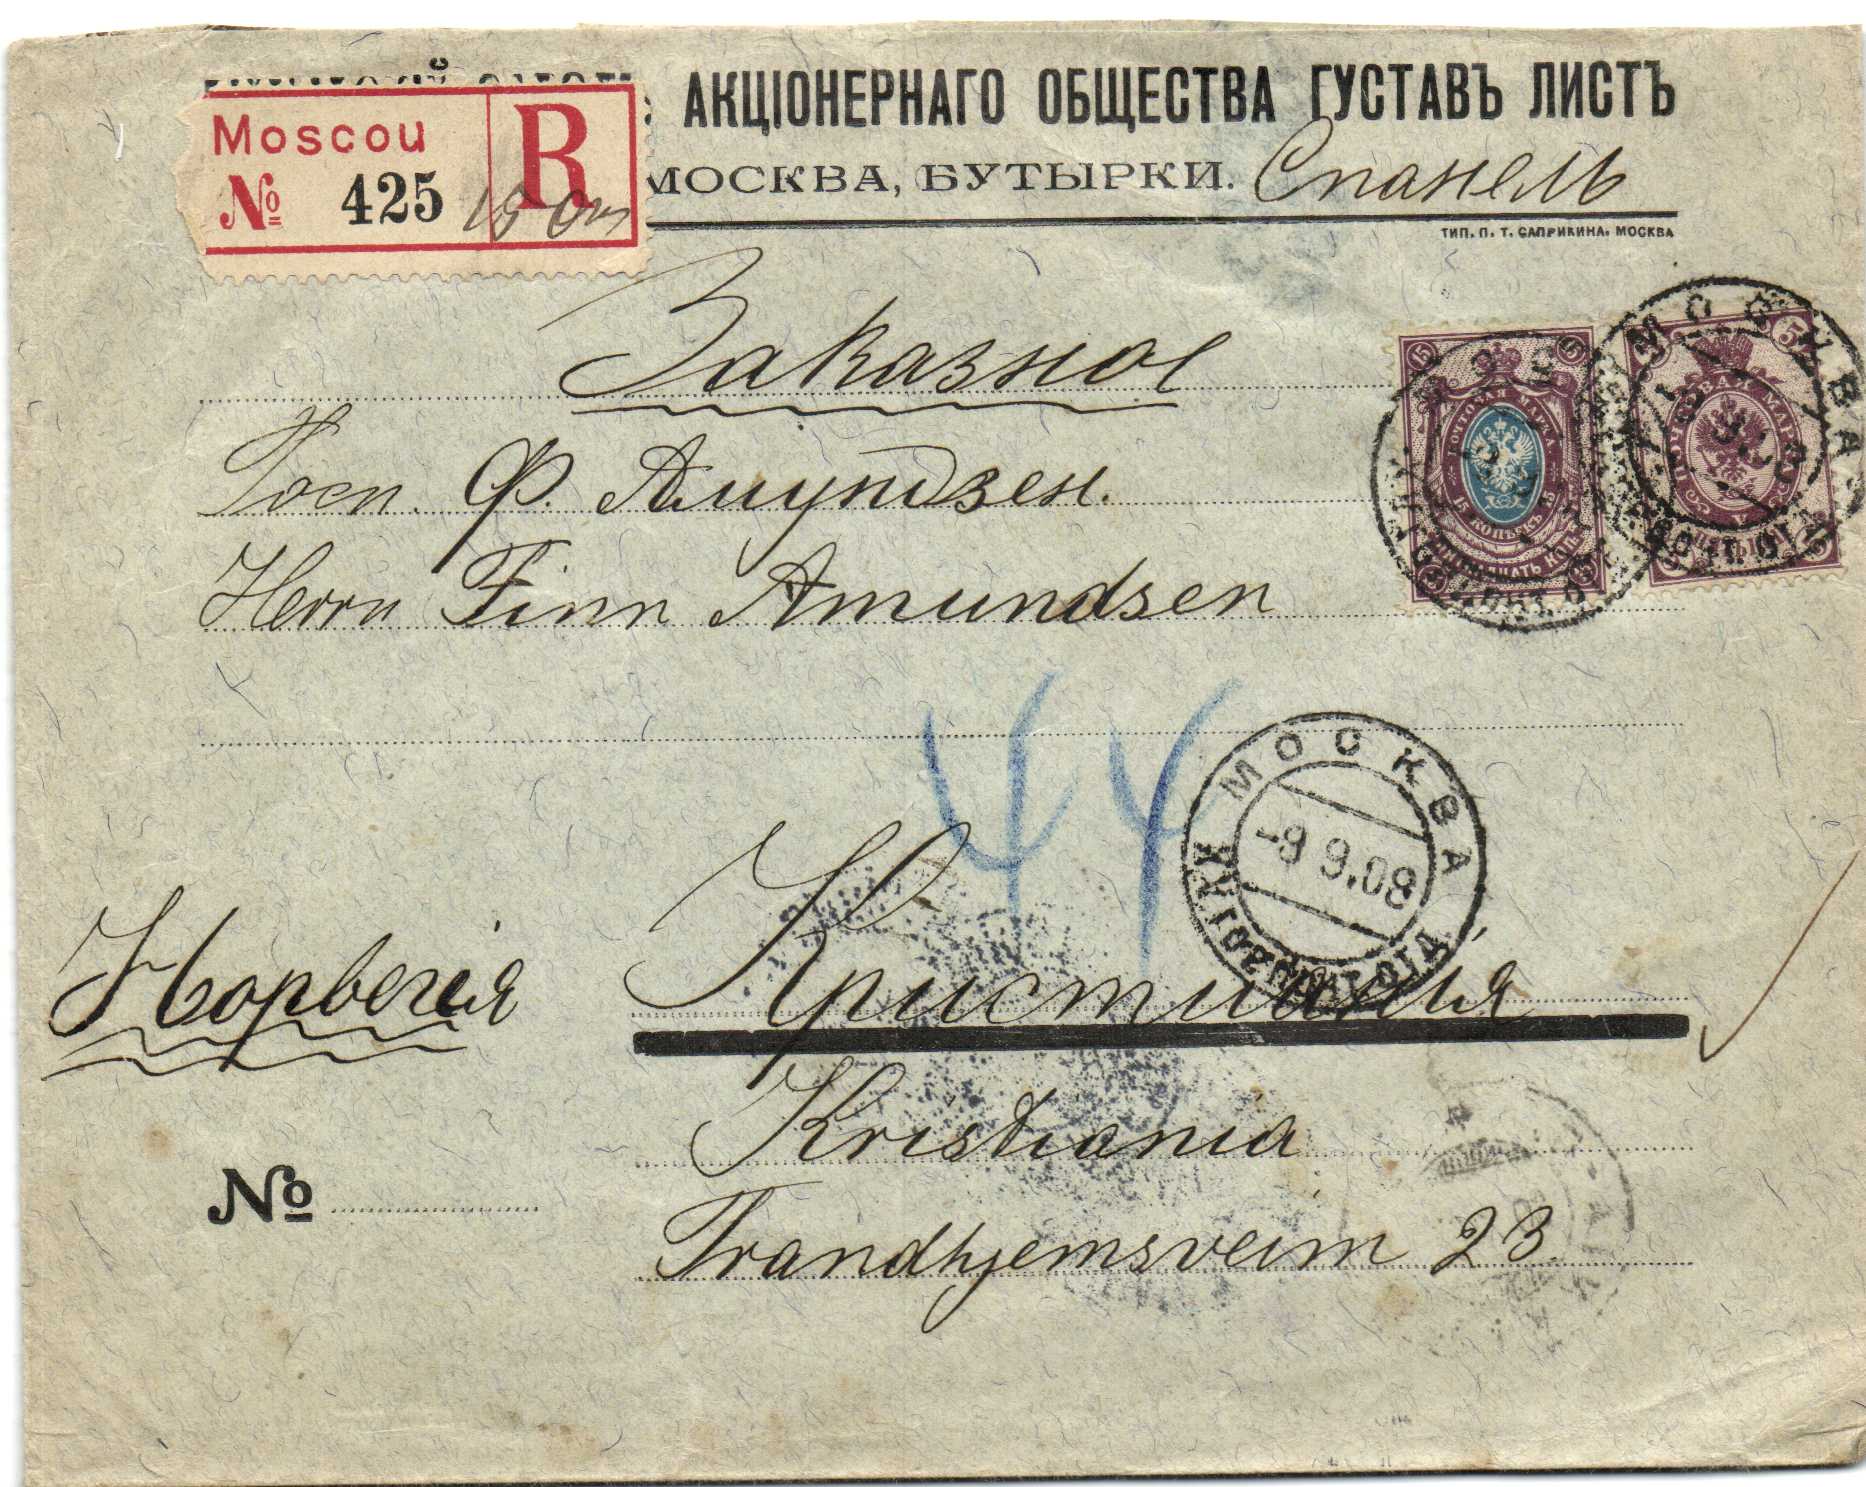 АКЦІОНЕРНАГО ОБЩЕСТВА ГУСТАВЪ ЛИСТЪ
МОСКВА, БУТЫРКИ. Спанель
ТИП. П. Т. САПРИКИНА. МОСКВА
Moscou R
№ 425
Заказное
Госп. Ф. Амундзен.
Herrn Finn Amundsen
МОСКВА
15 КОПѢЕКЪ
МОСКВА
44
МОСКВА
-9 9.08
Норвегія
Кристианія
Kristiania
№
Trandhjemsveim 23.